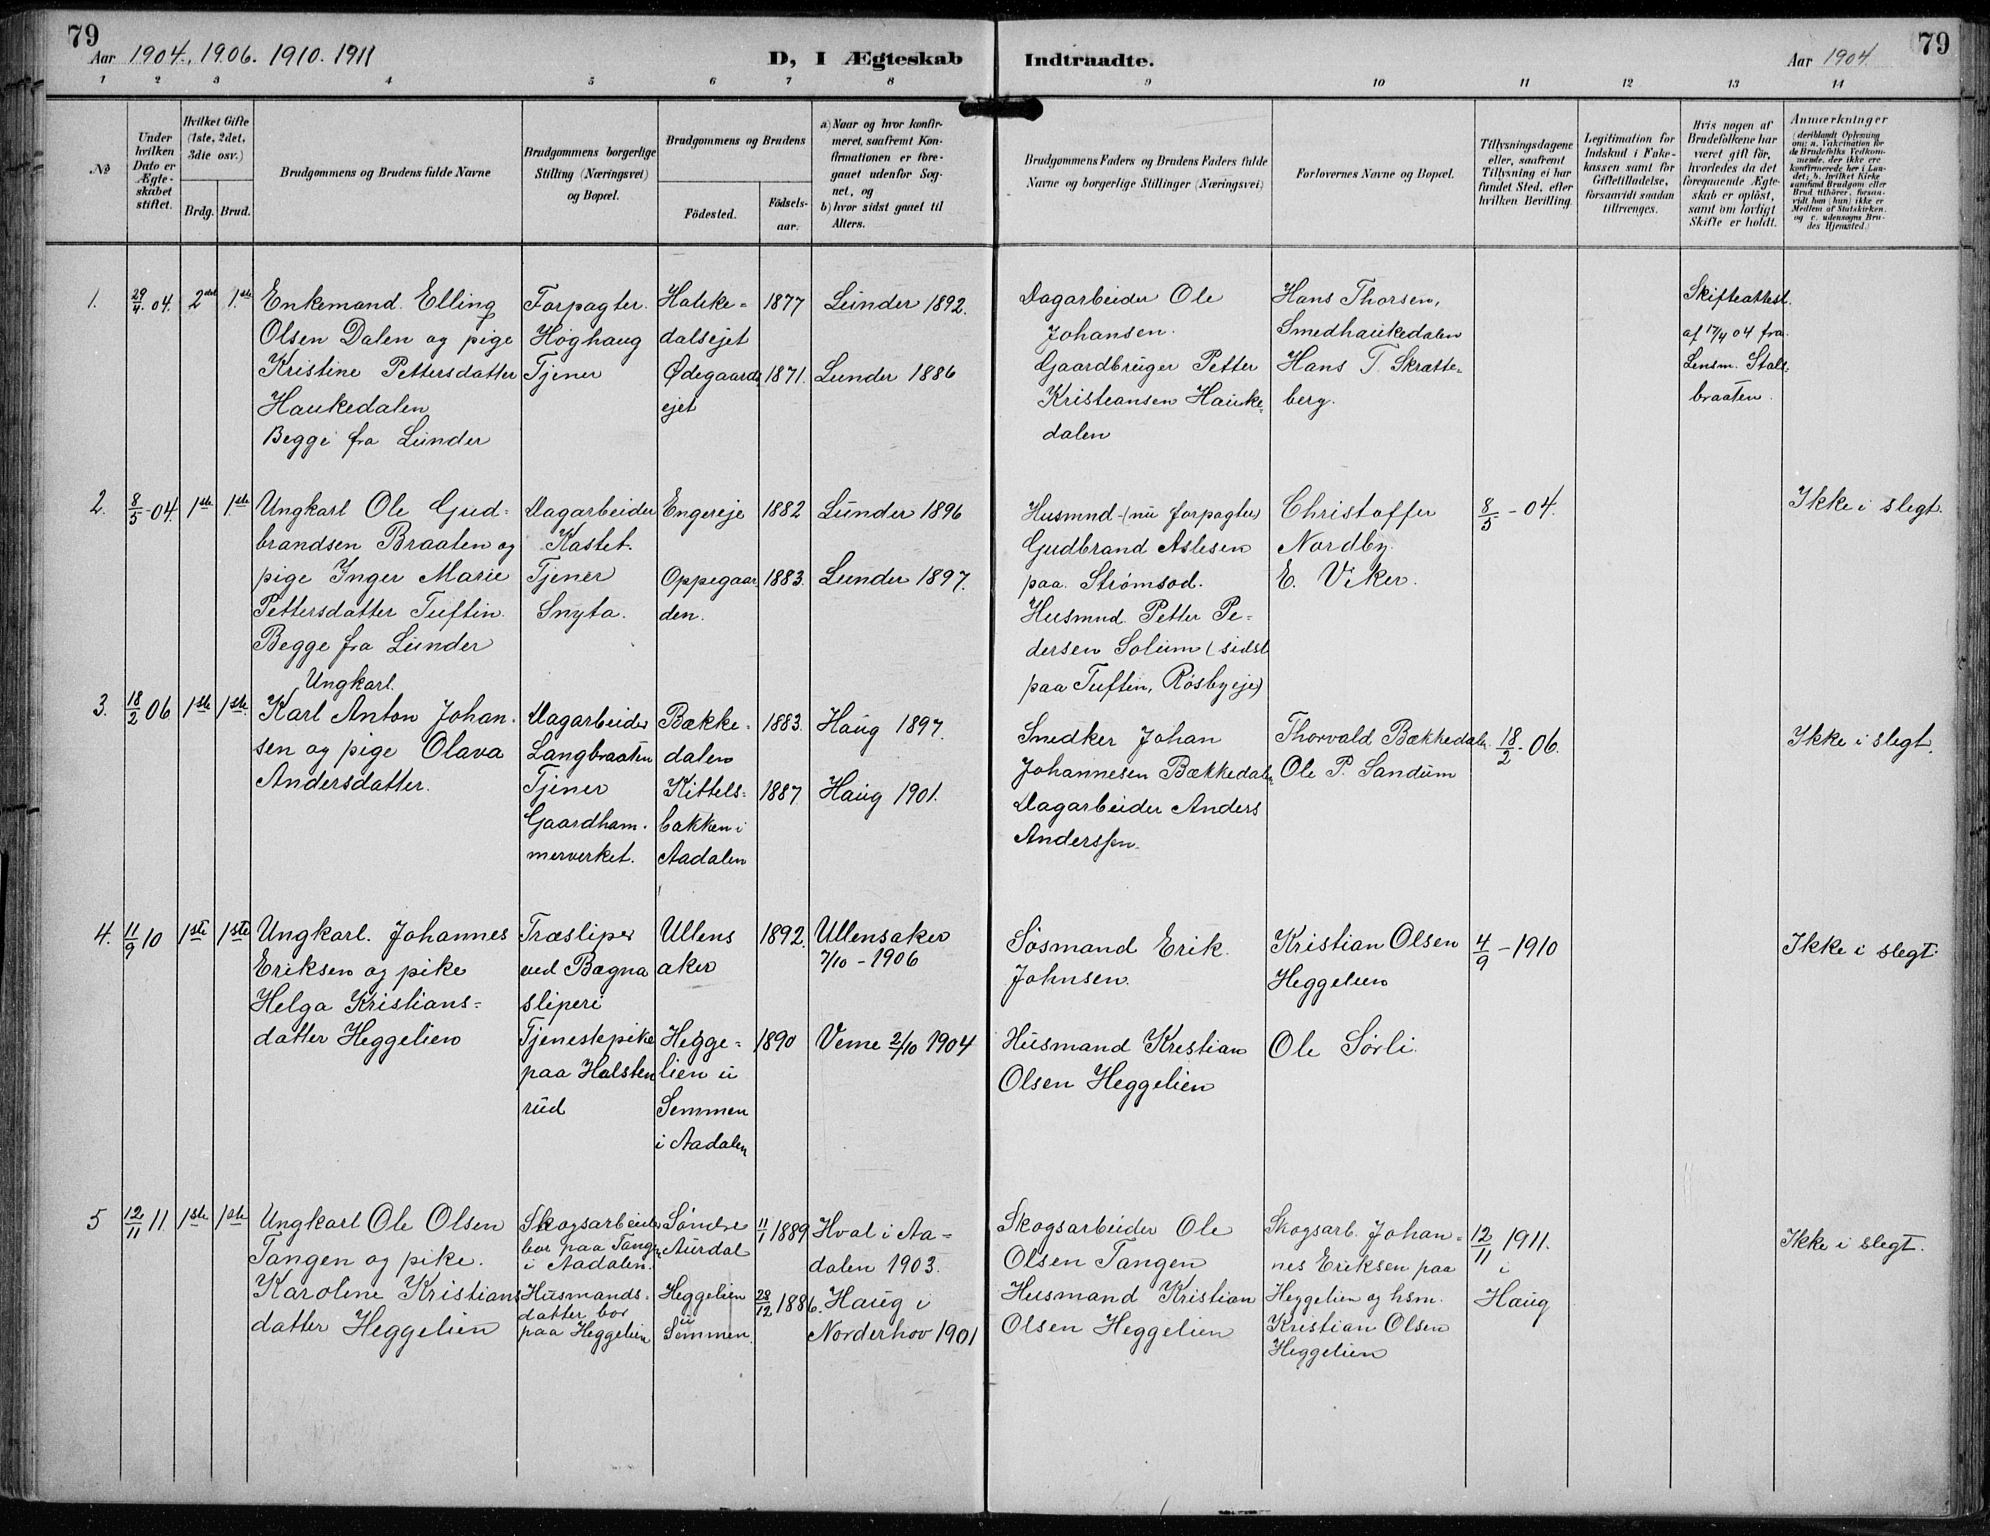 79
Aar 1904, 1906. 1910. 1911
D, I Ægteskab
Indtraadte.
Aar 1904.
79
1 2 3 4 5 6 7 8 9 10 11 12 13 14
No
Under hvilken Dato er Ægteskabet stiftet.
Hvilket Gifte (1ste, 2det, 3die osv.)
Brdg. Brud.
Brudgommens og Brudens fulde Navne
Brudgommens borgerlige Stilling (Næringsvei) og Bopæl.
Brudgommens og Brudens
Födested.
Födsels-aar.
a) Naar og hvor konfir-
meret, saafremt Kon-
firmationen er fore-
gaaet udenfor Sog-
net, og
b) hvor sidst gaaet til
Alters.
Brudgommens Faders og Brudens Faders fulde
Navne og borgerlige Stillinger (Næringsvei)
Forlovernes Navne og Bopæl.
Tillysningsdagene
eller, saafremt
Tillysning ei har
fundet Sted, efter
hvilken Bevilling.
Legitimation for
Indskud i Enke-
kassen samt for
Giftetilladelse,
forsaavidt saadan
tiltrænges.
Hvis nogen af
Brudefolkene har
været gift för,
hvorledes da det
foregaaende Ægte-
skab er oplöst,
samt om lovligt
Skifte er holdt.
Anmærkninger
(deriblandt Oplysning
om: a. Vakcination for
de Brudefolks Vedkom-
mende, der ikke ere
konfirmerede her i Lan-
det; b. hvilket Kirke
samfund Brudgom eller
Brud tilhörer, forsaa-
vidt han (hun) ikke er
Medlem af Statskirken,
og c. udensogns Bru-
des Hjemsted.)
1. 29/4 04. 2det 1.ste
Enkemand. Elling
Olsen Dalen og pige
Kristine Pettersdatter
Haukedalen
Begge fra Lunder
Forpagter.
Høghaug
Tjener
Hauke-
dalsejet
Ødegaards
ejet
1877
1871.
Lunder 1892.
Lunder 1886
Dagarbeider Ole
Johansen.
Gaardbruger Petter
Kristiansen Hauke-
dalen
Hans Thorsen,
Smedhaukedalen
Hans T. Skratte-
berg.
Skifteattest.
af 17/4 04 fra
Lensm. Stals-
braaten.
2. 8/5-04. 1ste 1ste
Ungkarl Ole Gud-
brandsen Braaten og
pige Inger Marie
Pettersdatter Tuftin.
Begge fra Lunder
Dagarbeider
Kastet.
Tjener
Snyta.
Engereje
Oppegaar
den.
1882
1883.
Lunder 1896
Lunder 1897.
Husmnd-(nu forpagter)
Gudbrand Aslesen
paa Strømsod.
Husmnd. Petter Pe-
dersen Solum (sidst
paa Tuftin, Røsbyeje)
Christoffer
Nordby.
E. Viker.
8/5-04.
Ikke i slegt.
3. 18/2 06 1ste 1ste
Ungkarl.
Karl Anton Johan-
sen og pige Olava
Andersdatter.
Dagarbeider
Langbraaten
Tjener
Gaardham-
merverket.
Bække-
dalen
Kittels-
bakken i
Aadalen
1883.
1887.
Haug 1897.
Haug 1901.
Snedker Johan
Johannesen Bækkedalen
Dagarbeider Anders
Anderssen.
Thorvald Bækkedalen
Ole P. Sandum
18/2-06.
Ikke i slegt.
4. 11/9 10 1ste 1ste
Ungkarl. Johannes
Eriksen og pike
Helga Kristians-
datter Heggelien
Træsliper
ved Bægna
sliperi
Tjenestepike
paa Halsten
rud
Ullens
aker
Hegge-
lien u
Semmen
i Aadalen
1892.
1890
Ullensaker
7/10-1906
Veme 2/10 1904
Søsmand Erik.
Johnsen.
Husmand Kristian
Olsen Heggelien
Kristian Olsen
Heggelien
Ole Sørli.
4/9-1910
Ikke i slegt.
5 12/11 11. 1ste 1ste
Ungkarl Ole Olsen
Tangen og pike.
Karolene Kristians
datter Heggelien
Skogsarbeider
bor paa Tangen
i Aadalen.
Husmands-
datter bor
paa Heggelien
Søndre
Aurdal
Heggelien
u
Semmen.
11/1 1889
28/12 1886.
Hval i Aa-
dalen 1903.
Haug i
Norderhov 1901
Skogsarbeider Ole
Olsen Tangen
Husmand Kristian
Olsen Heggelien
Skogsarb. Johan-
nes Eriksen paa
Heggelien og hsm.
Kristian Olsen
Heggelien
12/11 1911.
i
Haug
Ikke i slegt.